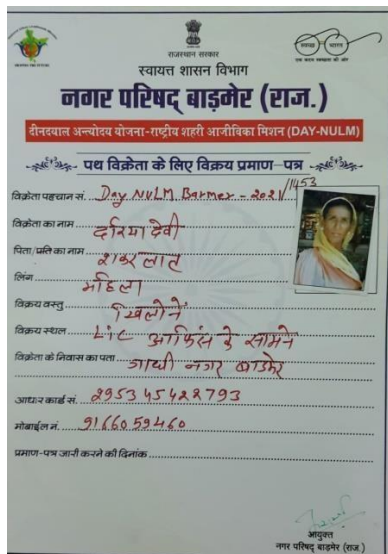 राजस्थान सरकार
स्वच्छ भारत
एक कदम स्वच्छता की ओर
स्वायत्त शासन विभाग
नगर परिषद् बाड़मेर (राज.)
दीनदयाल अन्त्योदय योजना-राष्ट्रीय शहरी आजीविका मिशन (DAY-NULM)
पथ विक्रेता के लिए विक्रय प्रमाण-पत्र
विक्रेता पहचान सं. Day NULM Barmer - 2021/1453
विक्रेता का नाम दरिया देवी
पिता/पति का नाम शंकर लाल
लिंग महिला
विक्रय वस्तु खिलौने
विक्रय स्थल LIC आफिस के सामने
विक्रेता के निवास का पता गांधी नगर बाडमेर
आधार कार्ड सं. 295345422793
मोबाईल नं. 9166059460
प्रमाण-पत्र जारी करने की दिनांक
आयुक्त
नगर परिषद् बाड़मेर (राज.)